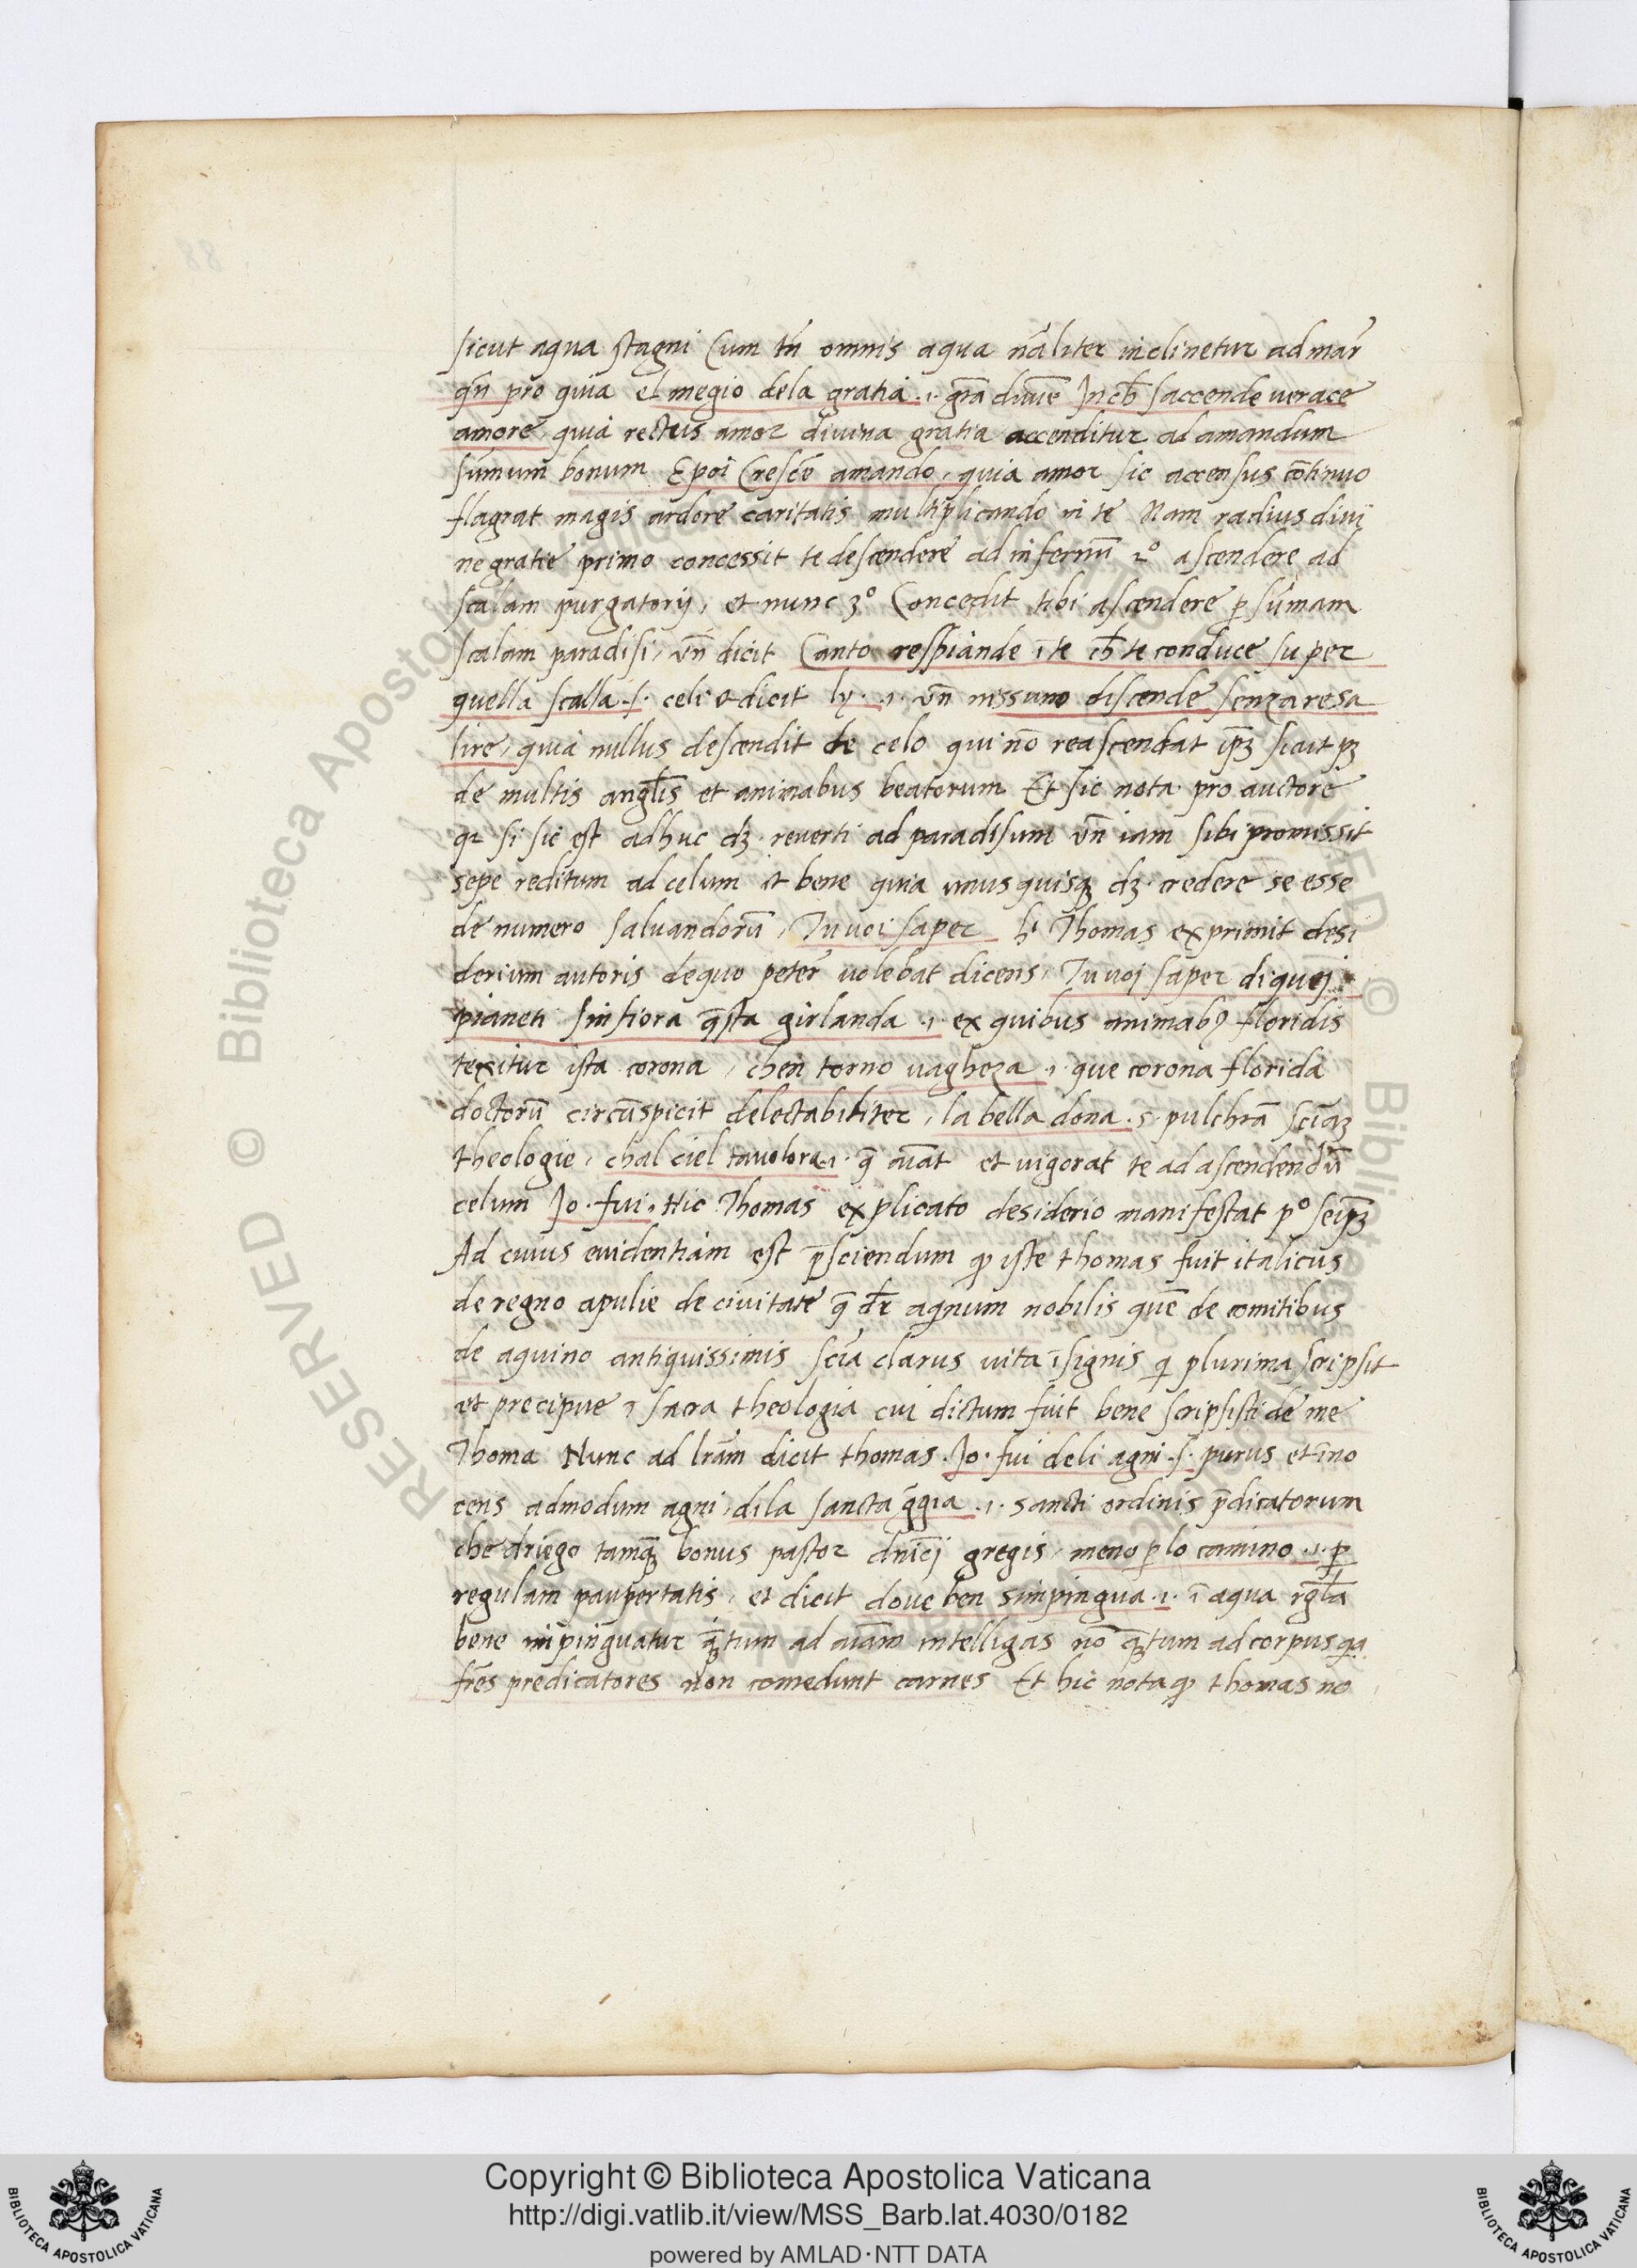 sicut aqua stagni Cum tn̄ omnis aqua nāliter inclinetur ad mar̄
qn̄ pro quia el megio dela gratia .i. gr̄a diuīe In ch̄ saccende uerace
amore, quia rectus amor divina gratia accenditur ad amandum
sūmum bonum E poi Cresce amando, quia amor sic accensus cōtinuo
flagrat magis ardore caritatis multiplicando in te Nam radius diui
ne gratie primo concessit te descendere ad infernū 2º ascendere ad
scalam purgatorij, et nunc 3º Concedit tibi ascendere p sūmam
scalam paradisi, vn̄ dicit Canto respiande ī te ch̄ te conduce su per
quella scalla .s. celi & dicit .i. vn̄ nissuno discende senza resa
lire, quia nullus descendit de celo qui nō reascendat ip̄ꝫ sicut pꝫ
de multis angl̄is et animabus beatorum Et sic nota pro auctore
si sic est adhuc dꝫ reverti ad paradisum vn̄ iam sibi promissit
sepe reditum ad celum et bene quia unus quisqꝫ dꝫ credere se esse
de numero salvandorū, Tu voi saper h̄ Thomas exprimit desi
derium autoris de quo peter̄ uolebat dicens, Tu voj saper di quej
pianeti sinfiora q̄sta girlanda .i. ex quibus animabꝰ floridis
texitur ista corona, chen torno vagheza .i. que corona florida
doctorū circūspicit delectabiliter, la bella dona .s. pulchrā sciāꝫ
theologie, chal ciel tavolora .i. q̄ et vigorat te ad ascendendū
celum Jo fui, Hic Thomas explicato desiderio manifestat pº seip̄ꝫ
Ad cuius euidentiam est p̄sciendum ꝙ iste thomas fuit italicus
de regno apulie de civitate q̄ dr̄ aqinum nobilis de comitibus
de aquino antiquissimis sciā clarus vita īsignis qi plurima scripsit
et precipue ī sacra theologia cui dictum fuit bene scripsisti de me
Thoma Nunc ad lrām dicit thomas. Jo fui deli agni .s. purus et īno
cens admodum agni, dila sancta .i. sancti ordinis p̄dicatorum
che tamqꝫ bonus pastor dnīcj gregis, meno p lo camino .i. p
regulam paupertatis, et dicit dove ben simpingua .i. ī aqua rgl̄a
bene inpinguatur q̄ꝫtum ad aīam intelligas nō q̄ꝫtum ad corpus qa
frēs predicatores non comedunt carnes Et hic nota ꝙ thomas no
Copyright © Biblioteca Apostolica Vaticana
http://digi.vatlib.it/view/MSS_Barb.lat.4030/0182
powered by AMLAD·NTT DATA